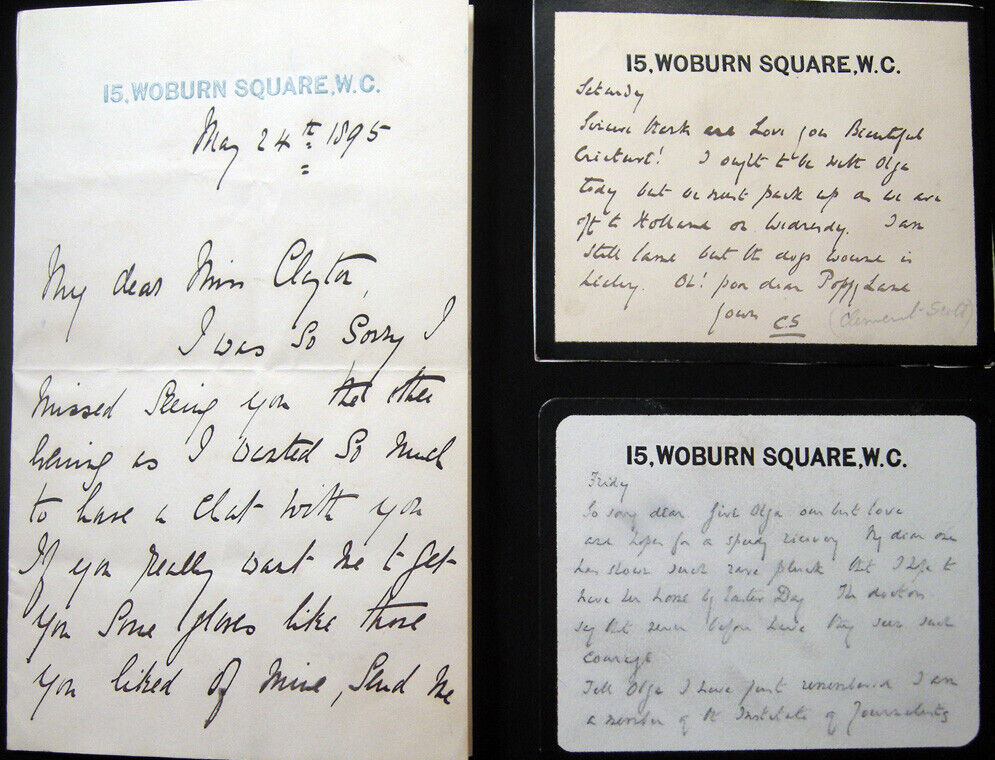 15, WOBURN SQUARE, W.C.
May 24th 1895
My dear Miss Clayton,
I was so sorry I
missed seeing you the other
evening as I wanted so much
to have a chat with you
If you really want me to get
you some gloves like those
you liked of mine, send me
15, WOBURN SQUARE, W.C.
Saturday
Sincere thanks and Love you Beautiful
Creature! I ought to be with Olga
today but we must pack up as we are
off to Holland on Wednesday. I am
still lame but the dogs wound is
healing. Oh! poor dear Poppy Lane
Yours C.S (Clement Scott)
15, WOBURN SQUARE, W.C.
Friday
So sorry dear. Give Olga our best love
and hopes for a speedy recovery My dear one
has shown such rare pluck that I hope to
have her home by Easter Day The doctors
say that never before have they seen such
courage
Tell Olga I have just remembered I am
a member of the Institute of Journalists